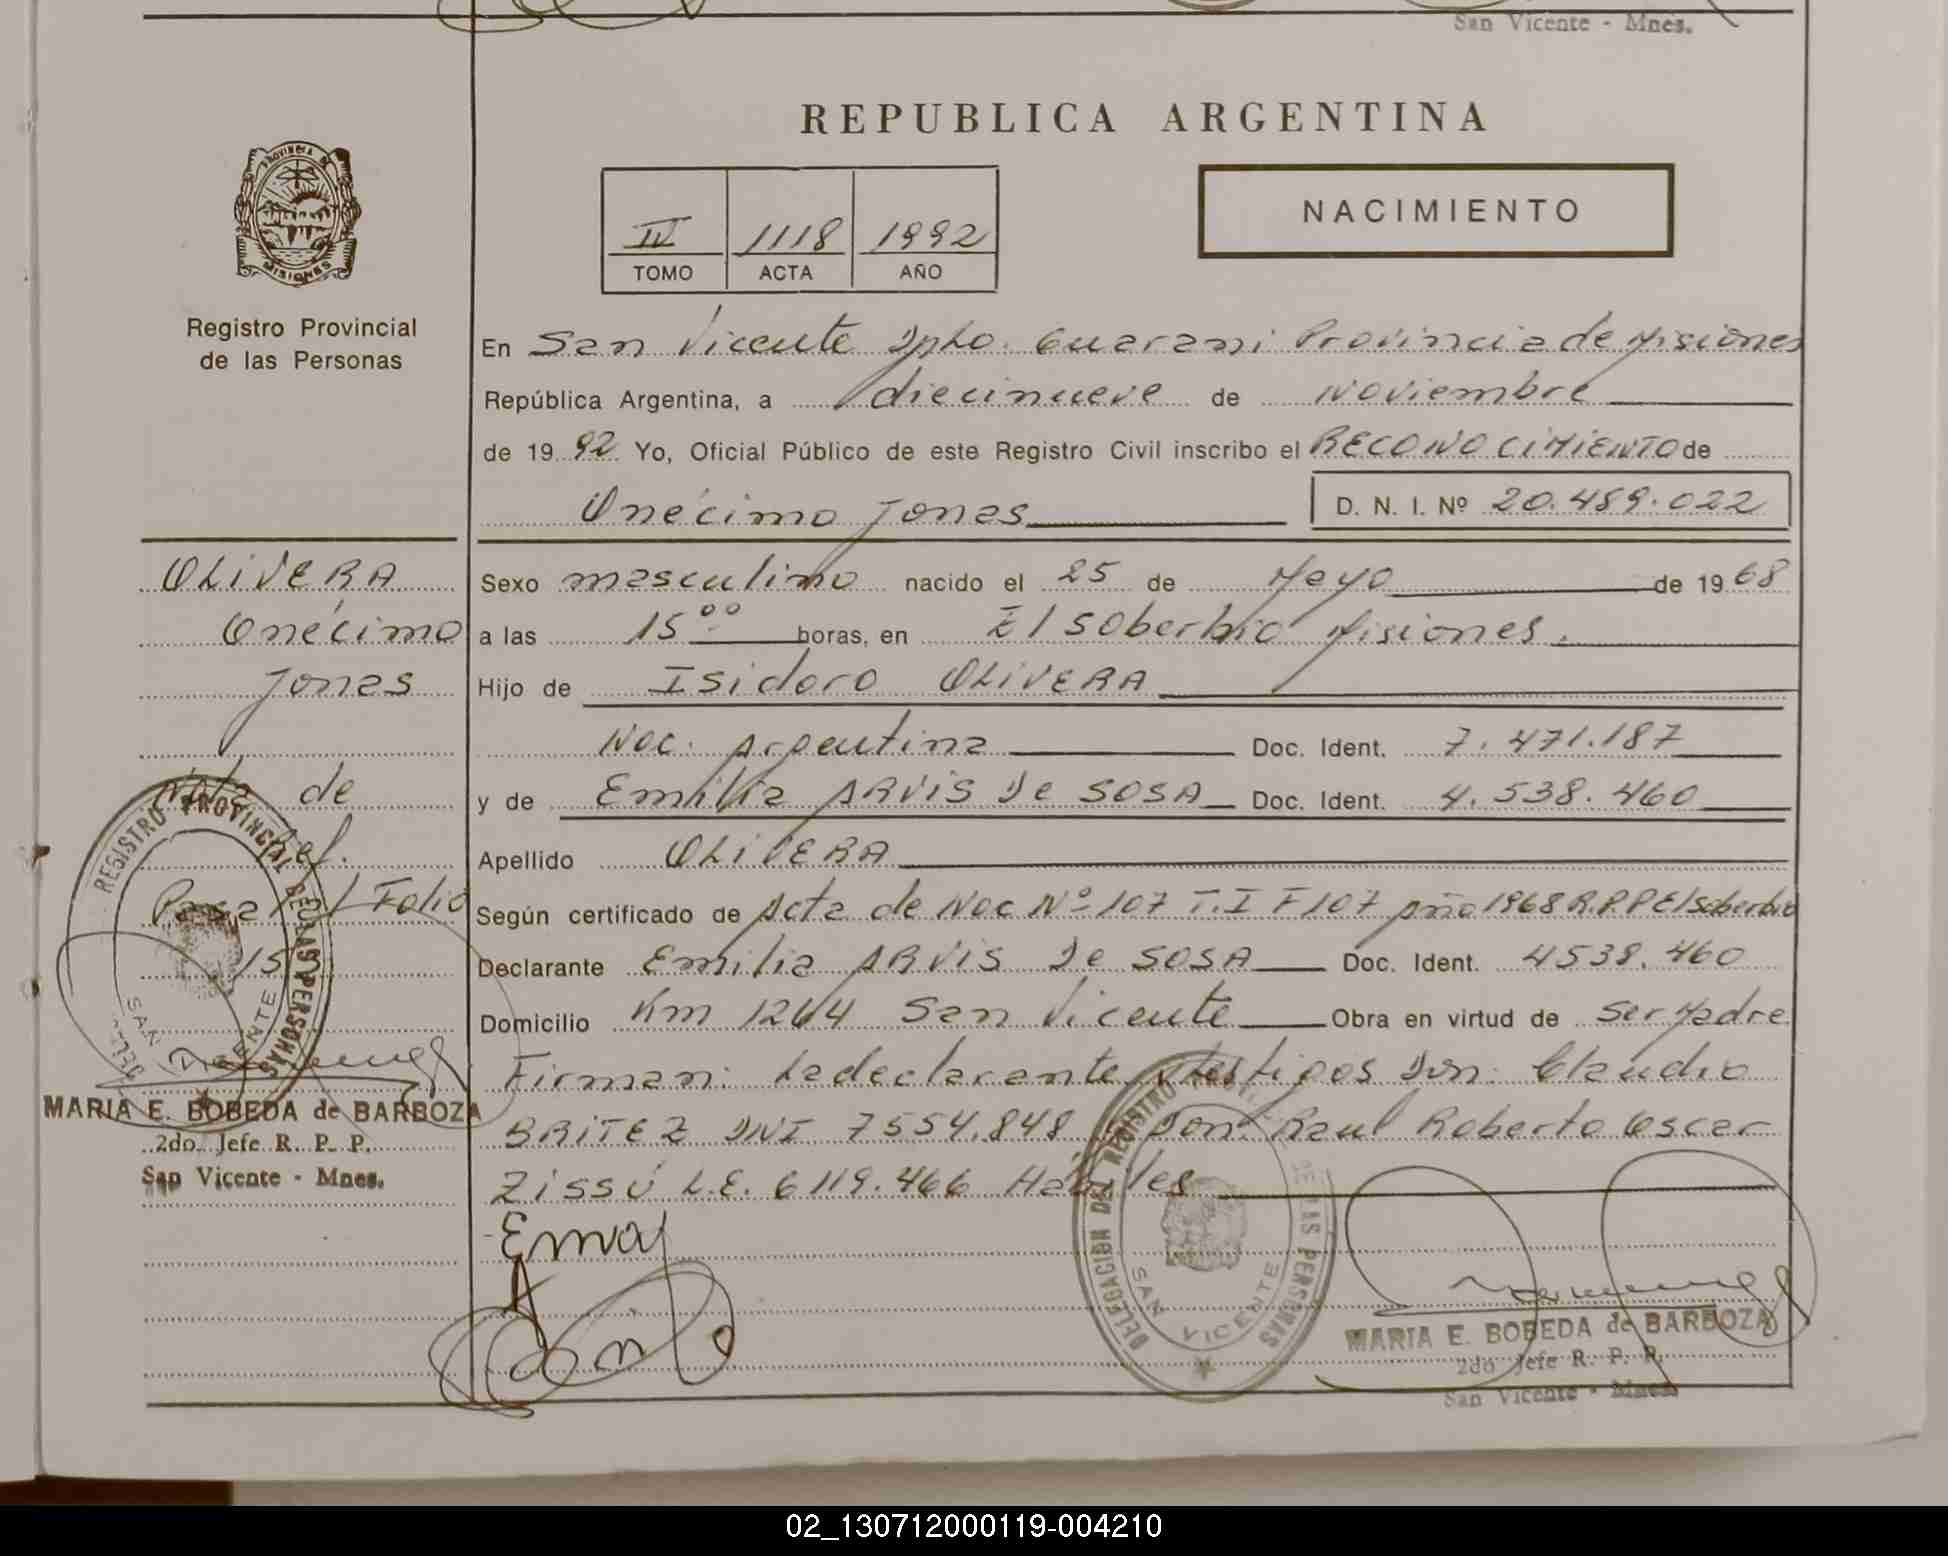 San Vicente - Mnes.
REPUBLICA ARGENTINA
PROVINCIA DE
MISIONES
IV 1118 1992
TOMO ACTA AÑO
NACIMIENTO
Registro Provincial
de las Personas
En San Vicente Dpto. Guarani Provincia de Misiones
República Argentina, a diecinueve de Noviembre
de 19 92 Yo, Oficial Público de este Registro Civil inscribo el RECONOCIMIENTO de
Onécimo Jonas D. N. I. Nº 20.489.022
OLIVERA
Onécimo
Jonas
Nota de
Ref.
Pasa al Folio
Sexo masculino nacido el 25 de Mayo de 19 68
a las 15 ºº horas, en El Soberbio Misiones.
Hijo de Isidoro OLIVERA
Nac. Argentina Doc. Ident. 7.471.187
y de Emilia ARVIS De SOSA Doc. Ident. 4.538.460
Apellido OLIVERA
Según certificado de Acta de Nac Nº 107 T.I F 107 Año 1968 R.P.P El Soberbio
Declarante Emilia ARVIS De SOSA Doc. Ident. 4538.460
Domicilio Km 1264 San Vicente Obra en virtud de ser Madre
Firman: La declarante y testigos Don: Claudio
BRITEZ DNI 7554.848 y Don: Raul Roberto Oscar
Zissú L.E. 6119.466 Hábiles
REGISTRO PROVINCIAL DE LAS PERSONAS
SAN VICENTE
MARIA E. BOBEDA de BARBOZA
2do. Jefe R. P. P.
San Vicente - Mnes.
DELEGACION DEL REGISTRO DE LAS PERSONAS
SAN VICENTE
MARIA E. BOBEDA de BARBOZA
2do. Jefe R. P. P.
San Vicente - Mnes.
02_130712000119-004210